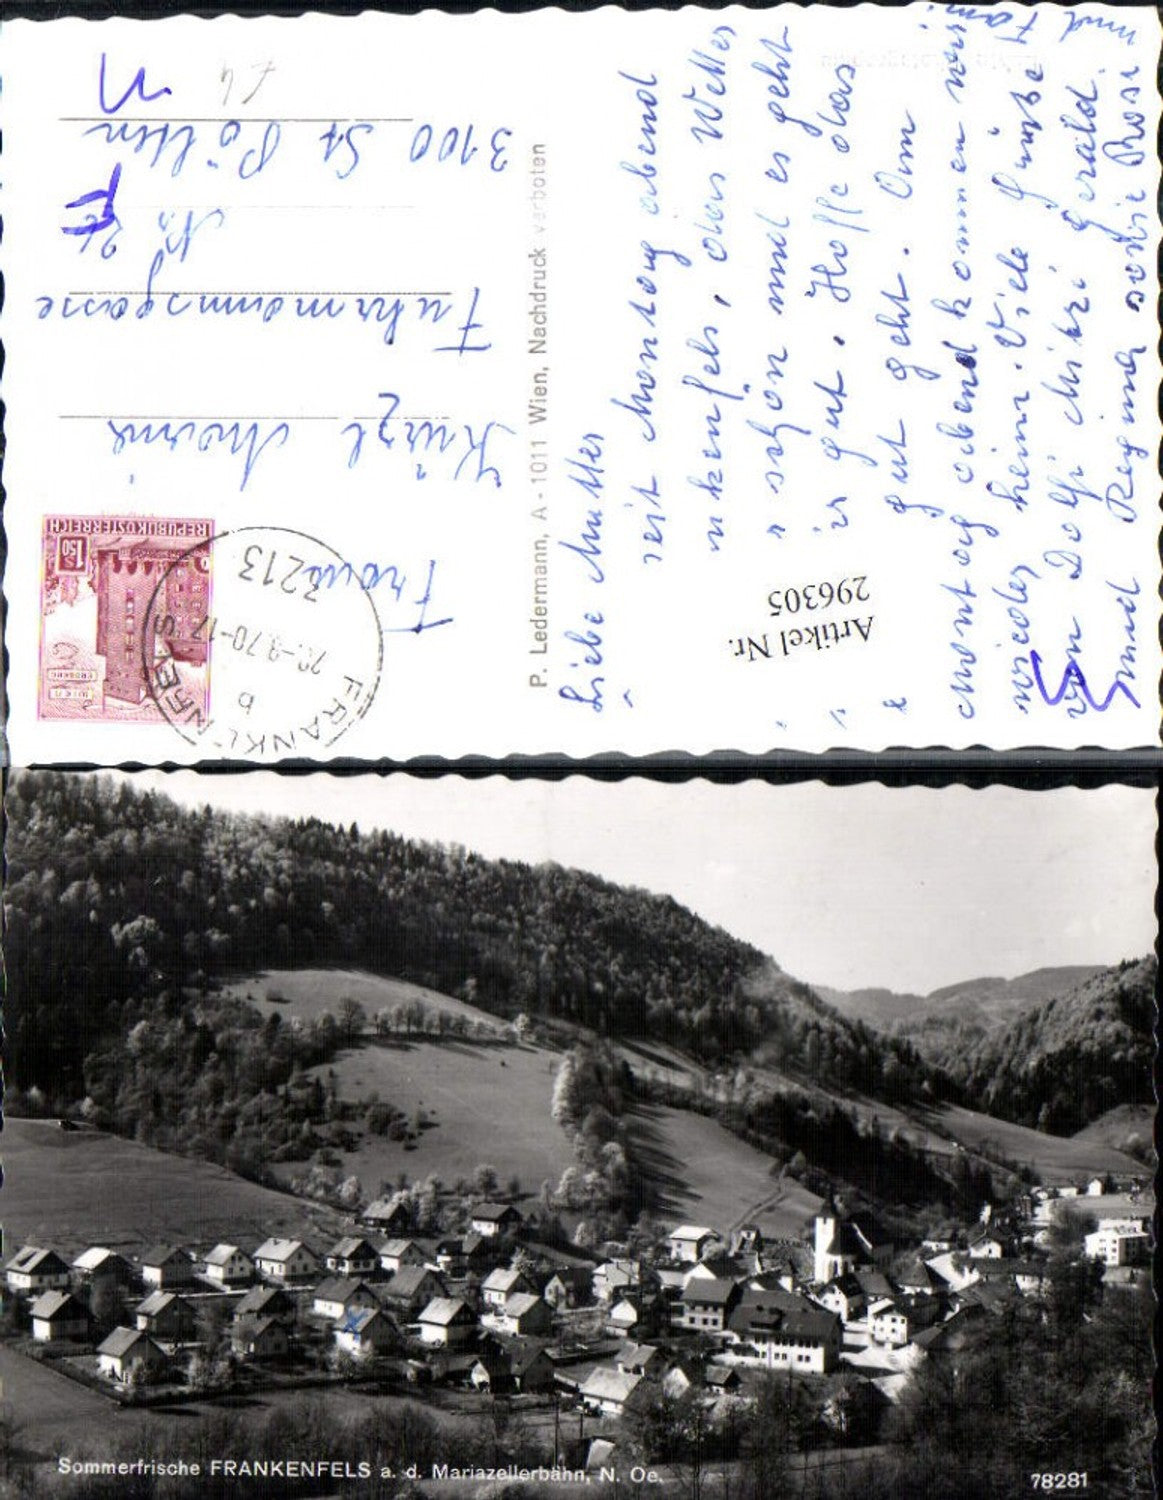 Liebe Mutter
seit Montag abend
nkenfels, das Wetter
schön und es geht
gut. Hoffe das
gut geht. Am
Montag abend kommen wir
wieder heim. Viele Grüsse
von Dolfi Mitzi Gerald.
und Regina sowie Rosi und Hami
P. Ledermann, A - 1011 Wien, Nachdruck verboten
Artikel Nr.
296305
Frau
Kürzl Maria
Fuhrmannsgasse
Nr
3100 St Pölten
REPUBLIK ÖSTERREICH
1.50
WIEN
ERDBERG
3213
-8.70-17
b
FRANKENFELS
Sommerfrische FRANKENFELS a. d. Mariazellerbahn, N. Oe.
78281